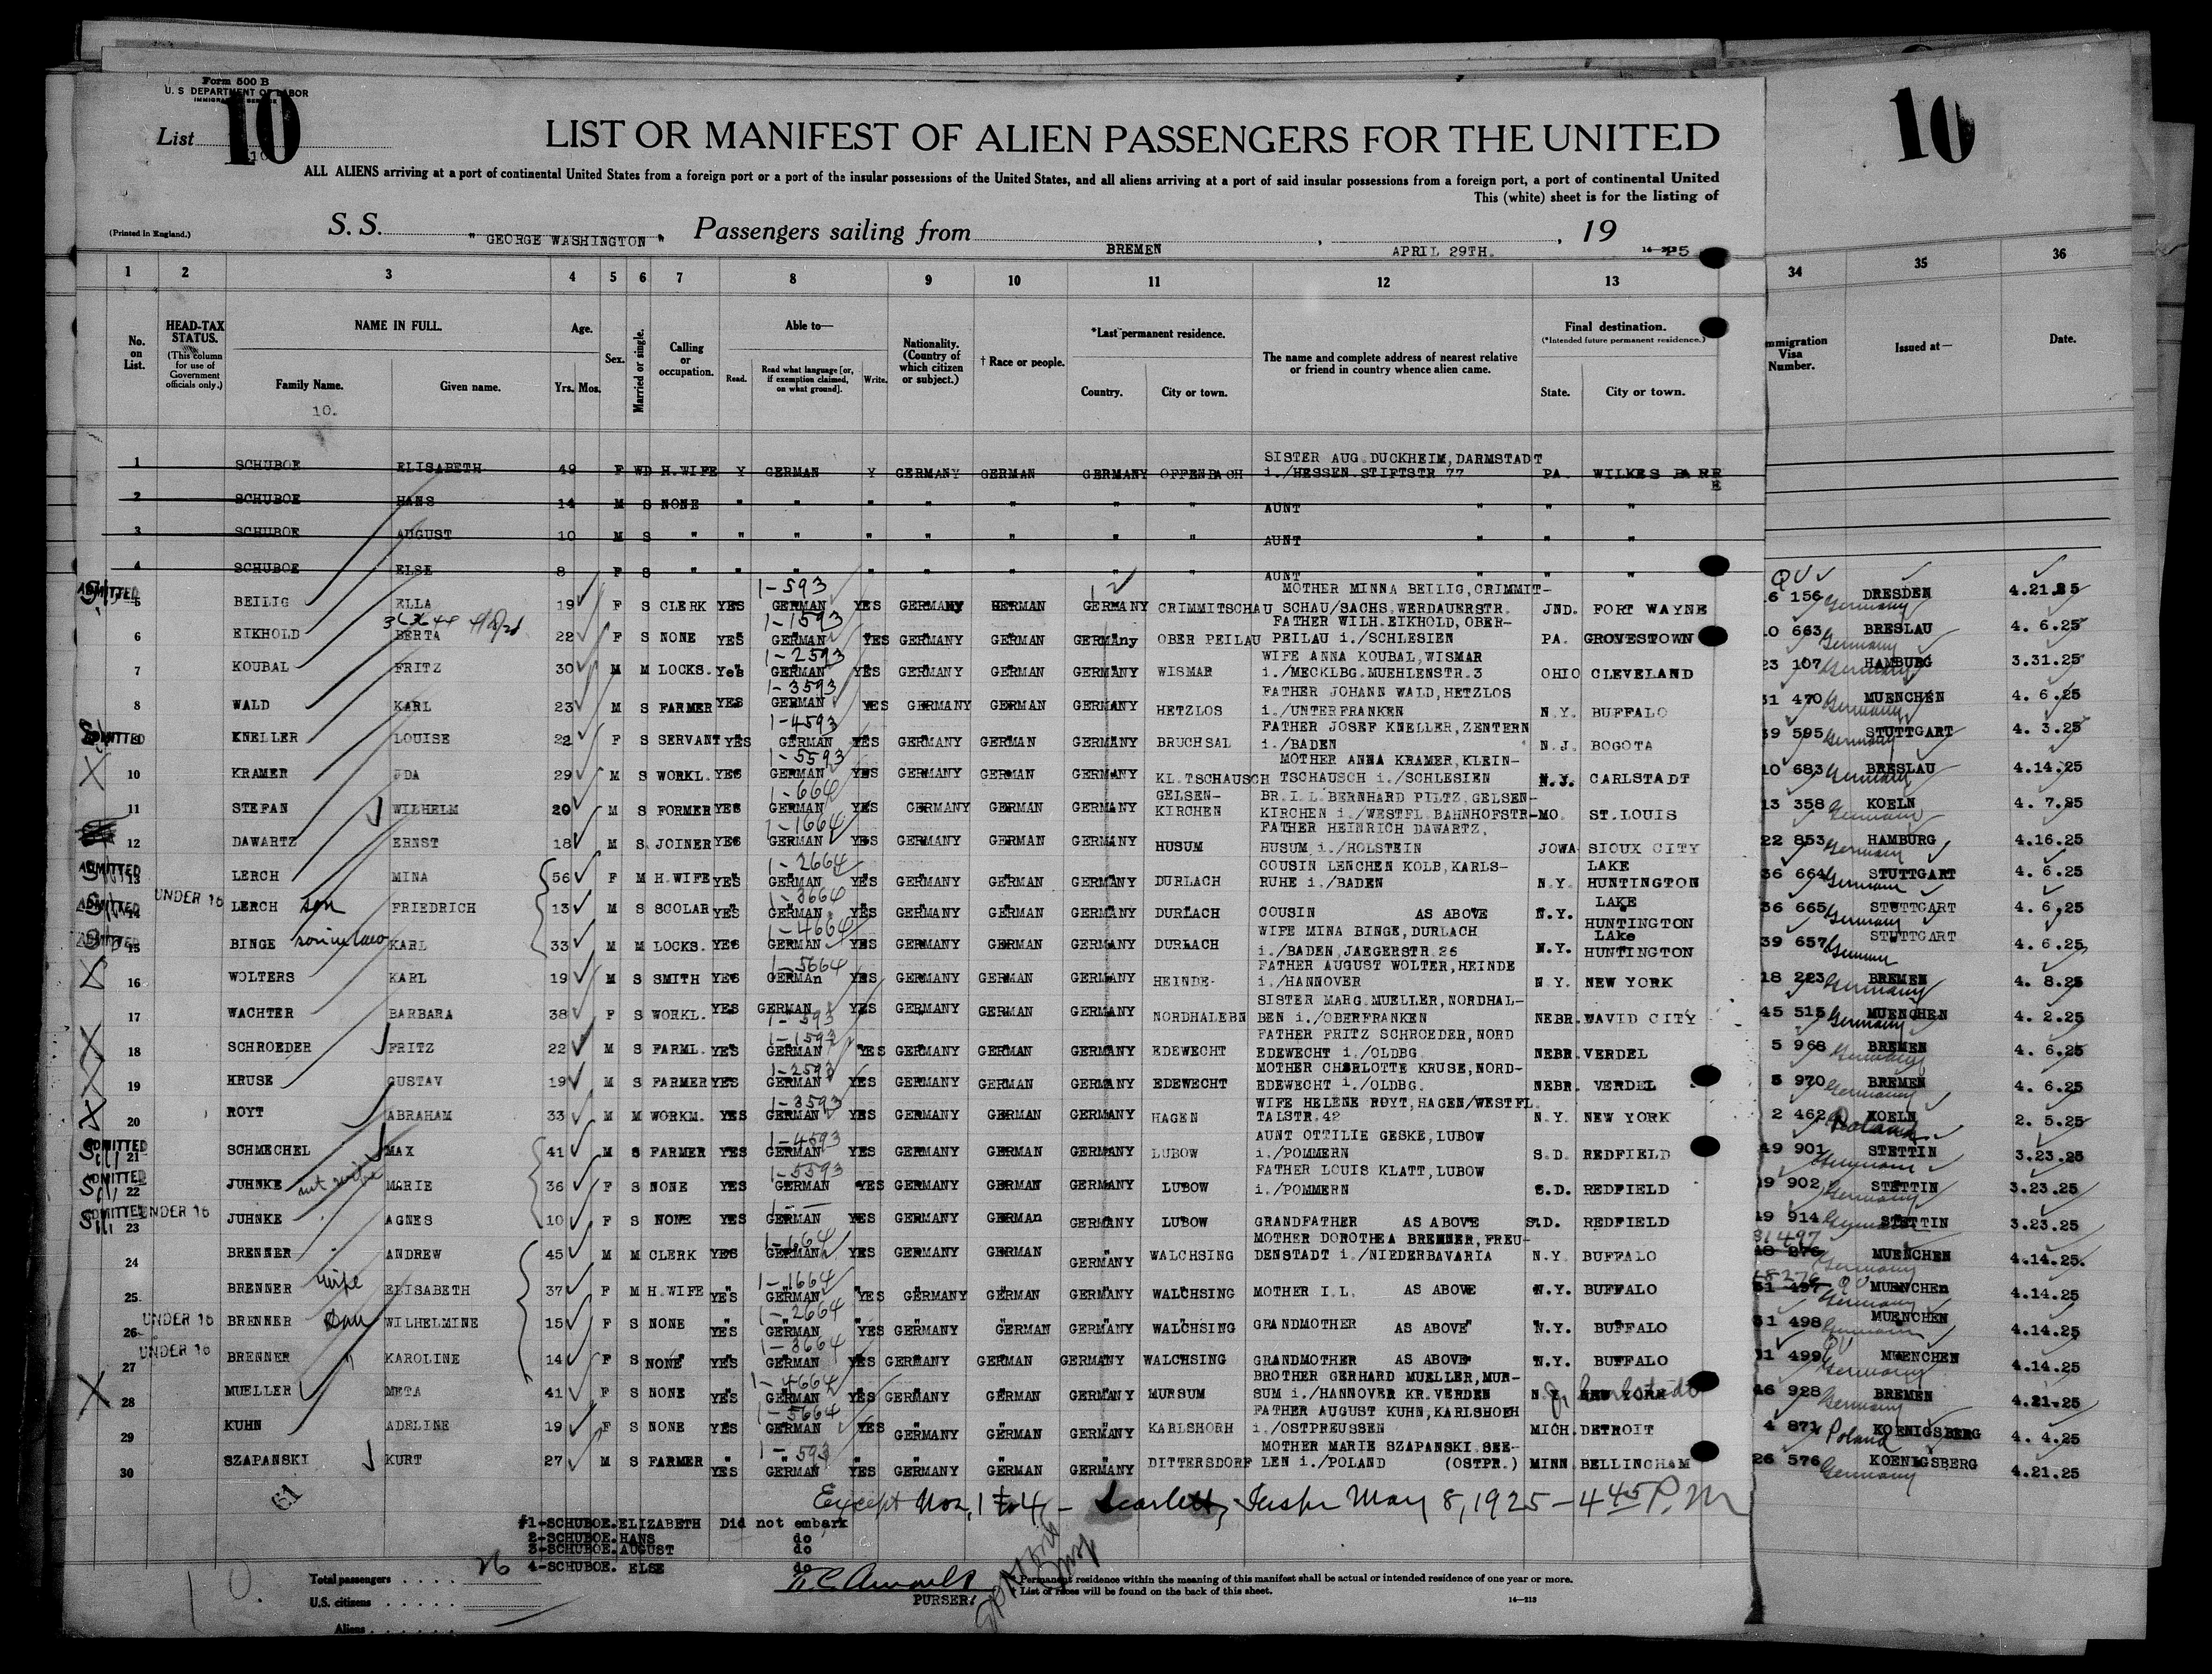 Form 500 B
U. S DEPARTMENT OF LABOR
IMMIGRATION SERVICE
List 10
10
10
LIST OR MANIFEST OF ALIEN PASSENGERS FOR THE UNITED
ALL ALIENS arriving at a port of continental United States from a foreign port or a port of the insular possessions of the United States, and all aliens arriving at a port of said insular possessions from a foreign port, a port of continental United
This (white) sheet is for the listing of
(Printed in England.)
S. S. " GEORGE WASHINGTON " Passengers sailing from BREMEN , APRIL 29TH. , 19 25
1 2 3 4 5 6 7 8 9 10 11 12 13 34 35 36
No. on List.
HEAD-TAX STATUS.
(This column for use of Government officials only.)
NAME IN FULL.
Family Name. Given name.
10.
Age.
Yrs. Mos.
Sex.
Married or single.
Calling or occupation.
Able to—
Read. Read what language [or, if exemption claimed, on what ground]. Write.
Nationality. (Country of which citizen or subject.)
† Race or people.
*Last permanent residence.
Country. City or town.
The name and complete address of nearest relative or friend in country whence alien came.
Final destination.
(*Intended future permanent residence.)
State. City or town.
Immigration Visa Number.
Issued at—
Date.
1 SCHUBOE ELISABETH 49 F WD H.WIFE Y GERMAN Y GERMANY GERMAN GERMANY OFFENBACH SISTER AUG.DUCKHEIM,DARMSTADT i./HESSEN.STIFTSTR 77 PA. WILKES BARRE
2 SCHUBOE HANS 14 M S NONE " " " " " " " AUNT " " "
3 SCHUBOE AUGUST 10 M S " " " " " " " " AUNT " " "
4 SCHUBOE ELSE 8 F S " " " " " " " " AUNT " " "
ADMITTED 5 BEILIG ELLA 19 F S CLERK YES 1-593 GERMAN YES GERMANY GERMAN GERMANY CRIMMITSCHAU MOTHER MINNA BEILIG,CRIMMIT- SCHAU/SACHS.WERDAUERSTR. JND. FORT WAYNE 6 156 Germany DRESDEN 4.21.25
6 EIKHOLD BERTA 22 F S NONE YES 1-1593 GERMAN YES GERMANY GERMAN GERMANy OBER PEILAU FATHER WILH.EIKHOLD,OBER- PEILAU i./SCHLESIEN PA. GROVESTOWN 10 663 Germany BRESLAU 4. 6.25
7 KOUBAL FRITZ 30 M M LOCKS. YeS 1-2593 GERMAN YES GERMANY GERMAN GERMANY WISMAR WIFE ANNA KOUBAL,WISMAR i./MECKLBG.MUEHLENSTR.3 OHIO CLEVELAND 23 107 Germany HAMBURG 3.31.25
8 WALD KARL 23 M S FARMER YES 1-3593 GERMAN YES GERMANY GERMAN GERMANY HETZLOS FATHER JOHANN WALD,HETZLOS i./UNTERFRANKEN N.Y. BUFFALO 31 470 Germany MUENCHEN 4. 6.25
ADMITTED 9 KNELLER LOUISE 22 F S SERVANT YES 1-4593 GERMAN YES GERMANY GERMAN GERMANY BRUCHSAL FATHER JOSEF KNELLER,ZENTERN i./BADEN N.J. BOGOTA 39 595 Germany STUTTGART 4. 3.25
X 10 KRAMER JDA 29 M S WORKL. YES 1-5593 GERMAN YES GERMANY GERMAN GERMANY KL.TSCHAUSCH MOTHER ANNA KRAMER,KLEIN- TSCHAUSCH i./SCHLESIEN N.J. CARLSTADT 10 683 Germany BRESLAU 4.14.25
11 STEFAN WILHELM 20 M S FORMER YES 1-664 GERMAN YES GERMANY GERMAN GERMANY GELSEN- KIRCHEN BR.I.L.BERNHARD PILTZ,GELSEN- KIRCHEN i./WESTFL.BAHNHOFSTR- MO. ST.LOUIS 13 358 Germany KOELN 4. 7.25
12 DAWARTZ ERNST 18 M S JOINER YES 1-1664 GERMAN YES GERMANY GERMAN GERMANY HUSUM FATHER HEINRICH DAWARTZ, HUSUM i./HOLSTEIN JOWA SIOUX CITY 22 853 Germany HAMBURG 4.16.25
ADMITTED 13 LERCH MINA 56 F M H.WIFE YES 1-2664 GERMAN YES GERMANY GERMAN GERMANY DURLACH COUSIN LENCHEN KOLB,KARLS- RUHE i./BADEN N.Y. LAKE HUNTINGTON 36 664 Germany STUTTGART 4. 6.25
ADMITTED 14 UNDER 16 LERCH son FRIEDRICH 13 M S SCOLAR YES 1-3664 GERMAN YES GERMANY GERMAN GERMANY DURLACH COUSIN AS ABOVE N.Y. LAKE HUNTINGTON 36 665 Germany STUTTGART 4. 6.25
ADMITTED 15 BINGE son in law KARL 33 M M LOCKS. YES 1-4664 GERMAN YES GERMANY GERMAN GERMANY DURLACH WIFE MINA BINGE,DURLACH i./BADEN,JAEGERSTR.26 N.Y. LAke HUNTINGTON 39 657 German STUTTGART 4. 6.25
X 16 WOLTERS KARL 19 M S SMITH YES 1-5664 GERMAn YES GERMANY GERMAN GERMANY HEINDE- FATHER AUGUST WOLTER,HEINDE i./HANNOVER N.Y. NEW YORK 18 223 Germany BREMEN 4. 8.25
17 WACHTER BARBARA 38 F S WORKL. YES GERMAN 1-593 YES GERMANY GERMAN GERMANY NORDHALEBN SISTER MARG.MUELLER,NORDHAL- BEN i./OBERFRANKEN NEBR. DAVID CITY 45 515 Germany MUENCHEN 4. 2.25
X 18 SCHROEDER FRITZ 22 M S FARML. YES 1-1593 GERMAN YES GERMANY GERMAN GERMANY EDEWECHT FATHER FRITZ SCHROEDER,NORD EDEWECHT i./OLDBG. NEBR. VERDEL 5 968 Germany BREMEN 4. 6.25
X 19 KRUSE GUSTAV 19 M S FARMER YES 1-2593 GERMAN YES GERMANY GERMAN GERMANY EDEWECHT MOTHER CHARLOTTE KRUSE,NORD- EDEWECHT i./OLDBG. NEBR. VERDEL 5 970 Germany BREMEN 4. 6.25
X 20 ROYT ABRAHAM 33 M M WORKM. YES 1-3593 GERMAN YES GERMANY GERMAN GERMANY HAGEN WIFE HELENE ROYT,HAGEN/WESTFL. TALSTR.42 N.Y. NEW YORK 2 462 Poland KOELN 2. 5.25
ADMITTED 21 SCHMECHEL MAX 41 M S FARMER YES 1-4593 GERMAN YES GERMANY GERMAN GERMANY LUBOW AUNT OTTILIE GESKE,LUBOW i./POMMERN S.D. REDFIELD 19 901 Germany STETTIN 3.23.25
ADMITTED 22 JUHNKE not wife MARIE 36 F S NONE YES 1-5593 GERMAN YES GERMANY GERMAN GERMANY LUBOW FATHER LOUIS KLATT,LUBOW i./POMMERN S.D. REDFIELD 19 902 Germany STETTIN 3.23.25
ADMITTED 23 UNDER 16 JUHNKE AGNES 10 F S NONE YES 1-- GERMAN YES GERMANY GERMAn GERMANY LUBOW GRANDFATHER AS ABOVE S.D. REDFIELD 19 914 Germany STETTIN 3.23.25
24 BRENNER ANDREW 45 M M CLERK YES 1-664 GERMAN YES GERMANY GERMAN GERMANY WALCHSING MOTHER DOROTHEA BREMNER,FREU- DENSTADT i./NIEDERBAVARIA N.Y. BUFFALO 31497 Germany MUENCHEN 4.14.25.
25 BRENNER wife ELISABETH 37 F M H.WIFE YES 1-1664 GERMAN YES GERMANY GERMAN GERMANY WALCHSING MOTHER I.L. AS ABOVE N.Y. BUFFALO 18276 31 497 Germany MUENCHEn 4.14.25
26 UNDER 16 BRENNER Dau WILHELMINE 15 F S NONE YES 1-2664 GERMAN YES GERMANY GERMAN GERMANY WALCHSING GRANDMOTHER AS ABOVE N.Y. BUFFALO 31 498 Germany MUENCHEN 4.14.25
27 UNDER 16 BRENNER " KAROLINE 14 F S NONE YES 1-3664 GERMAN YES GERMANY GERMAN GERMANY WALCHSING GRANDMOTHER AS ABOVE N.Y. BUFFALO 31 499 Germany MUENCHEN 4.14.25
X 28 MUELLER META 41 F S NONE YES 1-4664 GERMAN YES GERMANY GERMAN GERMANY MURSUM BROTHER GERHARD MUELLER,MUR- SUM i./HANNOVER KR.VERDEN N.Y. NEW YORK 46 928 Germany BREMEN 4.21.25
29 KUHN ADELINE 19 F S NONE YES 1-5664 GERMAN YES GERMANY GERMAN GERMANY KARLSHORH FATHER AUGUST KUHN,KARLSHOEH i./OSTPREUSSEN MICH. DETROIT 4 871 Poland KOENIGSBERG 4. 4.25
30 SZAPANSKI KURT 27 M S FARMER YES 1-593 GERMAN YES GERMANY GERMAN GERMANY DITTERSDORF MOTHER MARIE SZAPANSKI SEE- LEN i./POLAND (OSTPR.) MINN. BELLINGHAM 26 576 Germany KOENIGSBERG 4.21.25
61
Except Nos, 1 to 4 - Scarlett, Inspr May 8, 1925 - 4 45 P. M
#1-SCHUBOE.ELIZABETH Did not embark
2-SCHUBOE.HANS do
3-SCHUBOE.AUGUST do
4-SCHUBOE. ELSE do
Total passengers 26
U.S. citizens
Aliens
PURSER.
* Permanent residence within the meaning of this manifest shall be actual or intended residence of one year or more.
† List of races will be found on the back of this sheet.
14—213